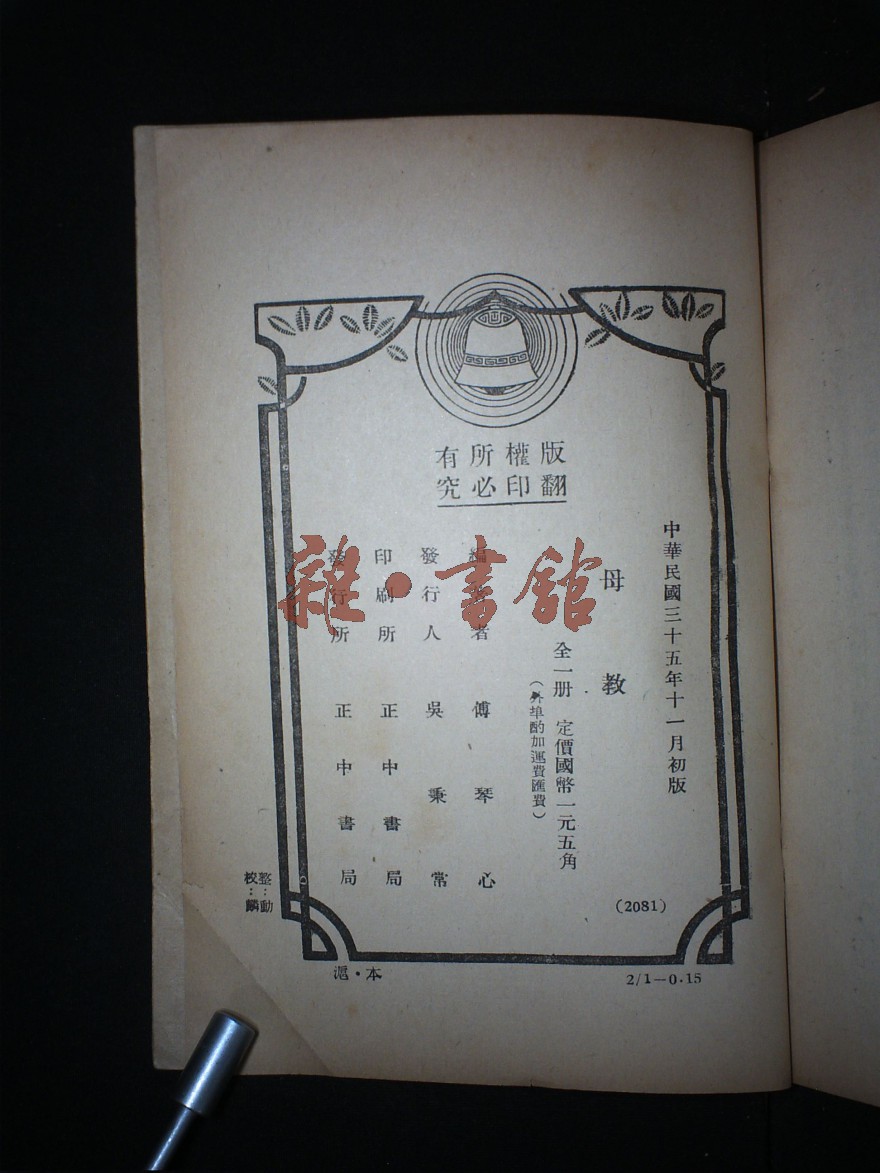 版權所有
翻印必究
中華民國三十五年十一月初版
母教
全一册 定價國幣一元五角
(外埠酌加運費匯費)
編著者 傅琴心
發行人 吳秉常
印刷所 正中書局
發行所 正中書局
(2081)
整:動
校:麟
滬·本
2/1—0.15
雜·書館